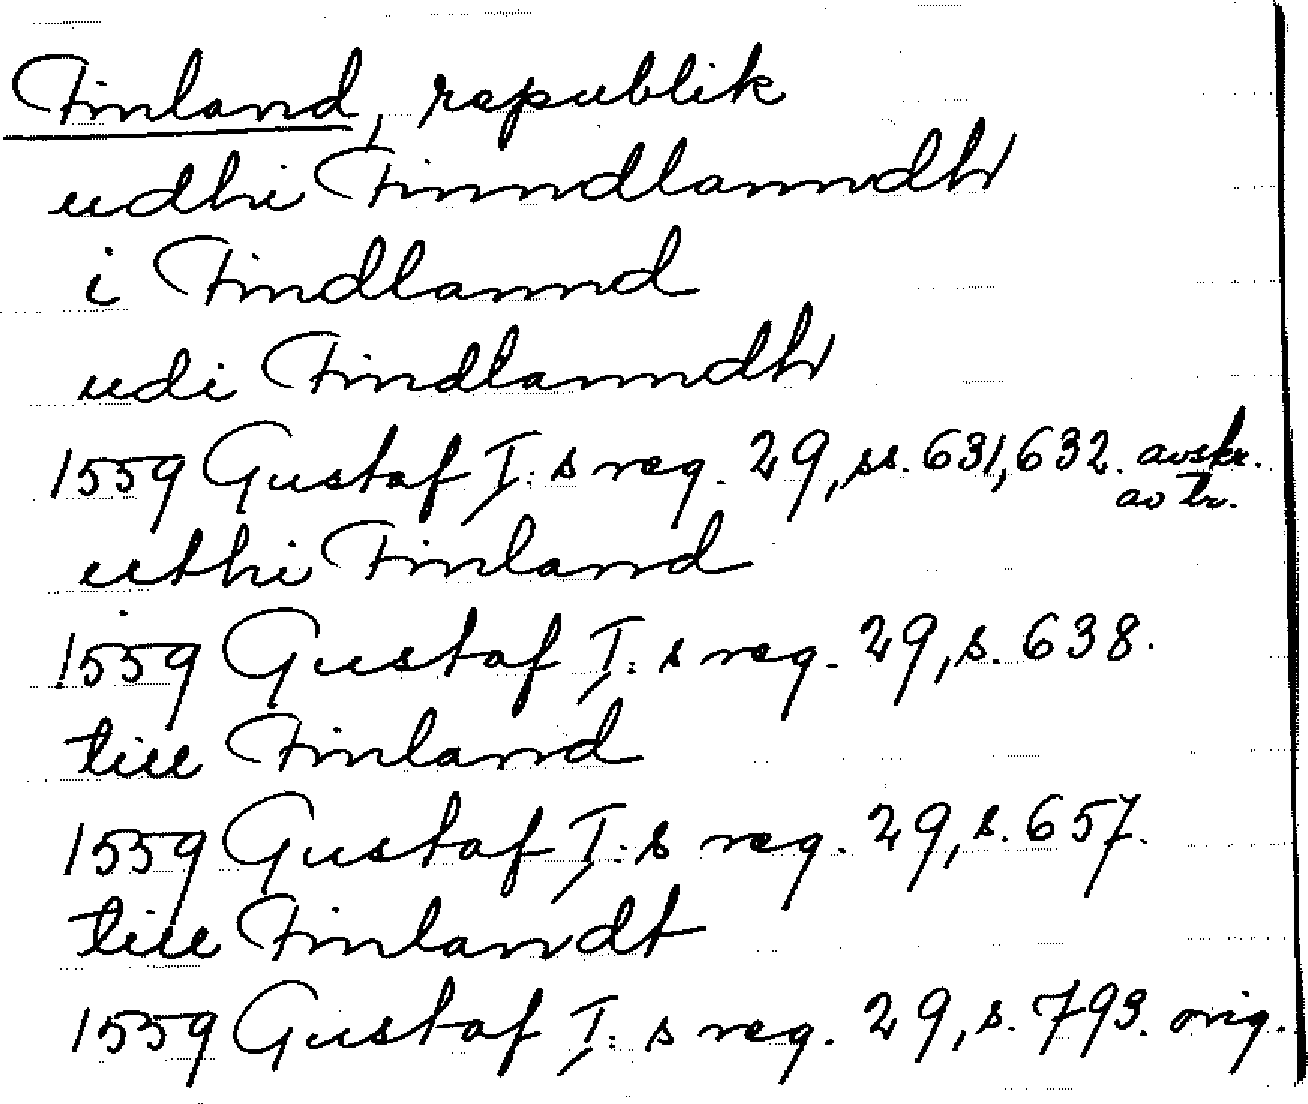 Finland, republik
udhi Finndlanndh
i Findlannd
udi Findlanndh
1559 Gustaf I:s reg. 29, ss. 631, 632. avskr.
av tr.
uthi Finland
1559 Gustaf I:s reg. 29, s. 638.
till Finland
1559 Gustaf I:s reg. 29, s. 657.
till Finlandt
1559 Gustaf I:s reg. 29, s. 793. orig.